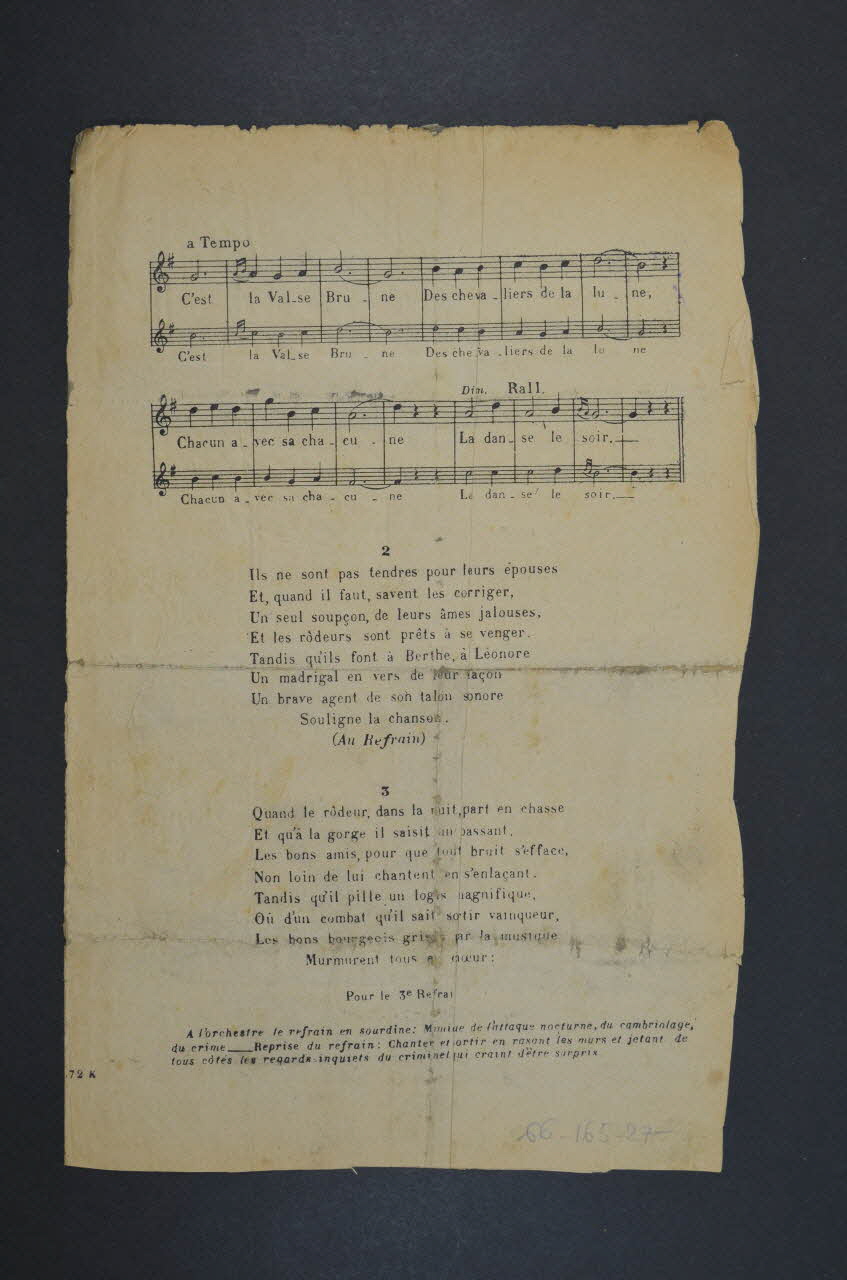 a Tempo
C'est la Val_se Bru _ ne Des cheva _ liers de la lu _ ne,
C'est la Val_se Bru _ ne Des che va _ liers de la lu ne
Dim. Rall.
Chacun a _ vec sa cha _ cu _ ne La dan _ se le soir.
Chacun a _ vec sa cha _ cu _ ne La dan _ se le soir.
2
Ils ne sont pas tendres pour leurs épouses
Et, quand il faut, savent les corriger,
Un seul soupçon, de leurs âmes jalouses,
Et les rôdeurs sont prêts à se venger.
Tandis qu'ils font à Berthe, à Léonore
Un madrigal en vers de leur façon
Un brave agent de son talon sonore
Souligne la chanson.
(Au Refrain)
3
Quand le rôdeur, dans la nuit, part en chasse
Et qu'à la gorge il saisit un passant,
Les bons amis, pour que tout bruit s'efface,
Non loin de lui chantent en s'enlaçant.
Tandis qu'il pille un logis magnifique,
Où d'un combat qu'il sait sortir vainqueur,
Les bons bourgeois gris par la musique
Murmurent tous en chœur:
Pour le 3e Refrai
A l'orchestre le refrain en sourdine: Mimique de l'attaque nocturne, du cambriolage,
du crime ___ Reprise du refrain: Chanter et sortir en rasant les murs et jetant de
tous côtés les regards inquiets du criminel qui craint d'être surpris
72 K
66-165-27